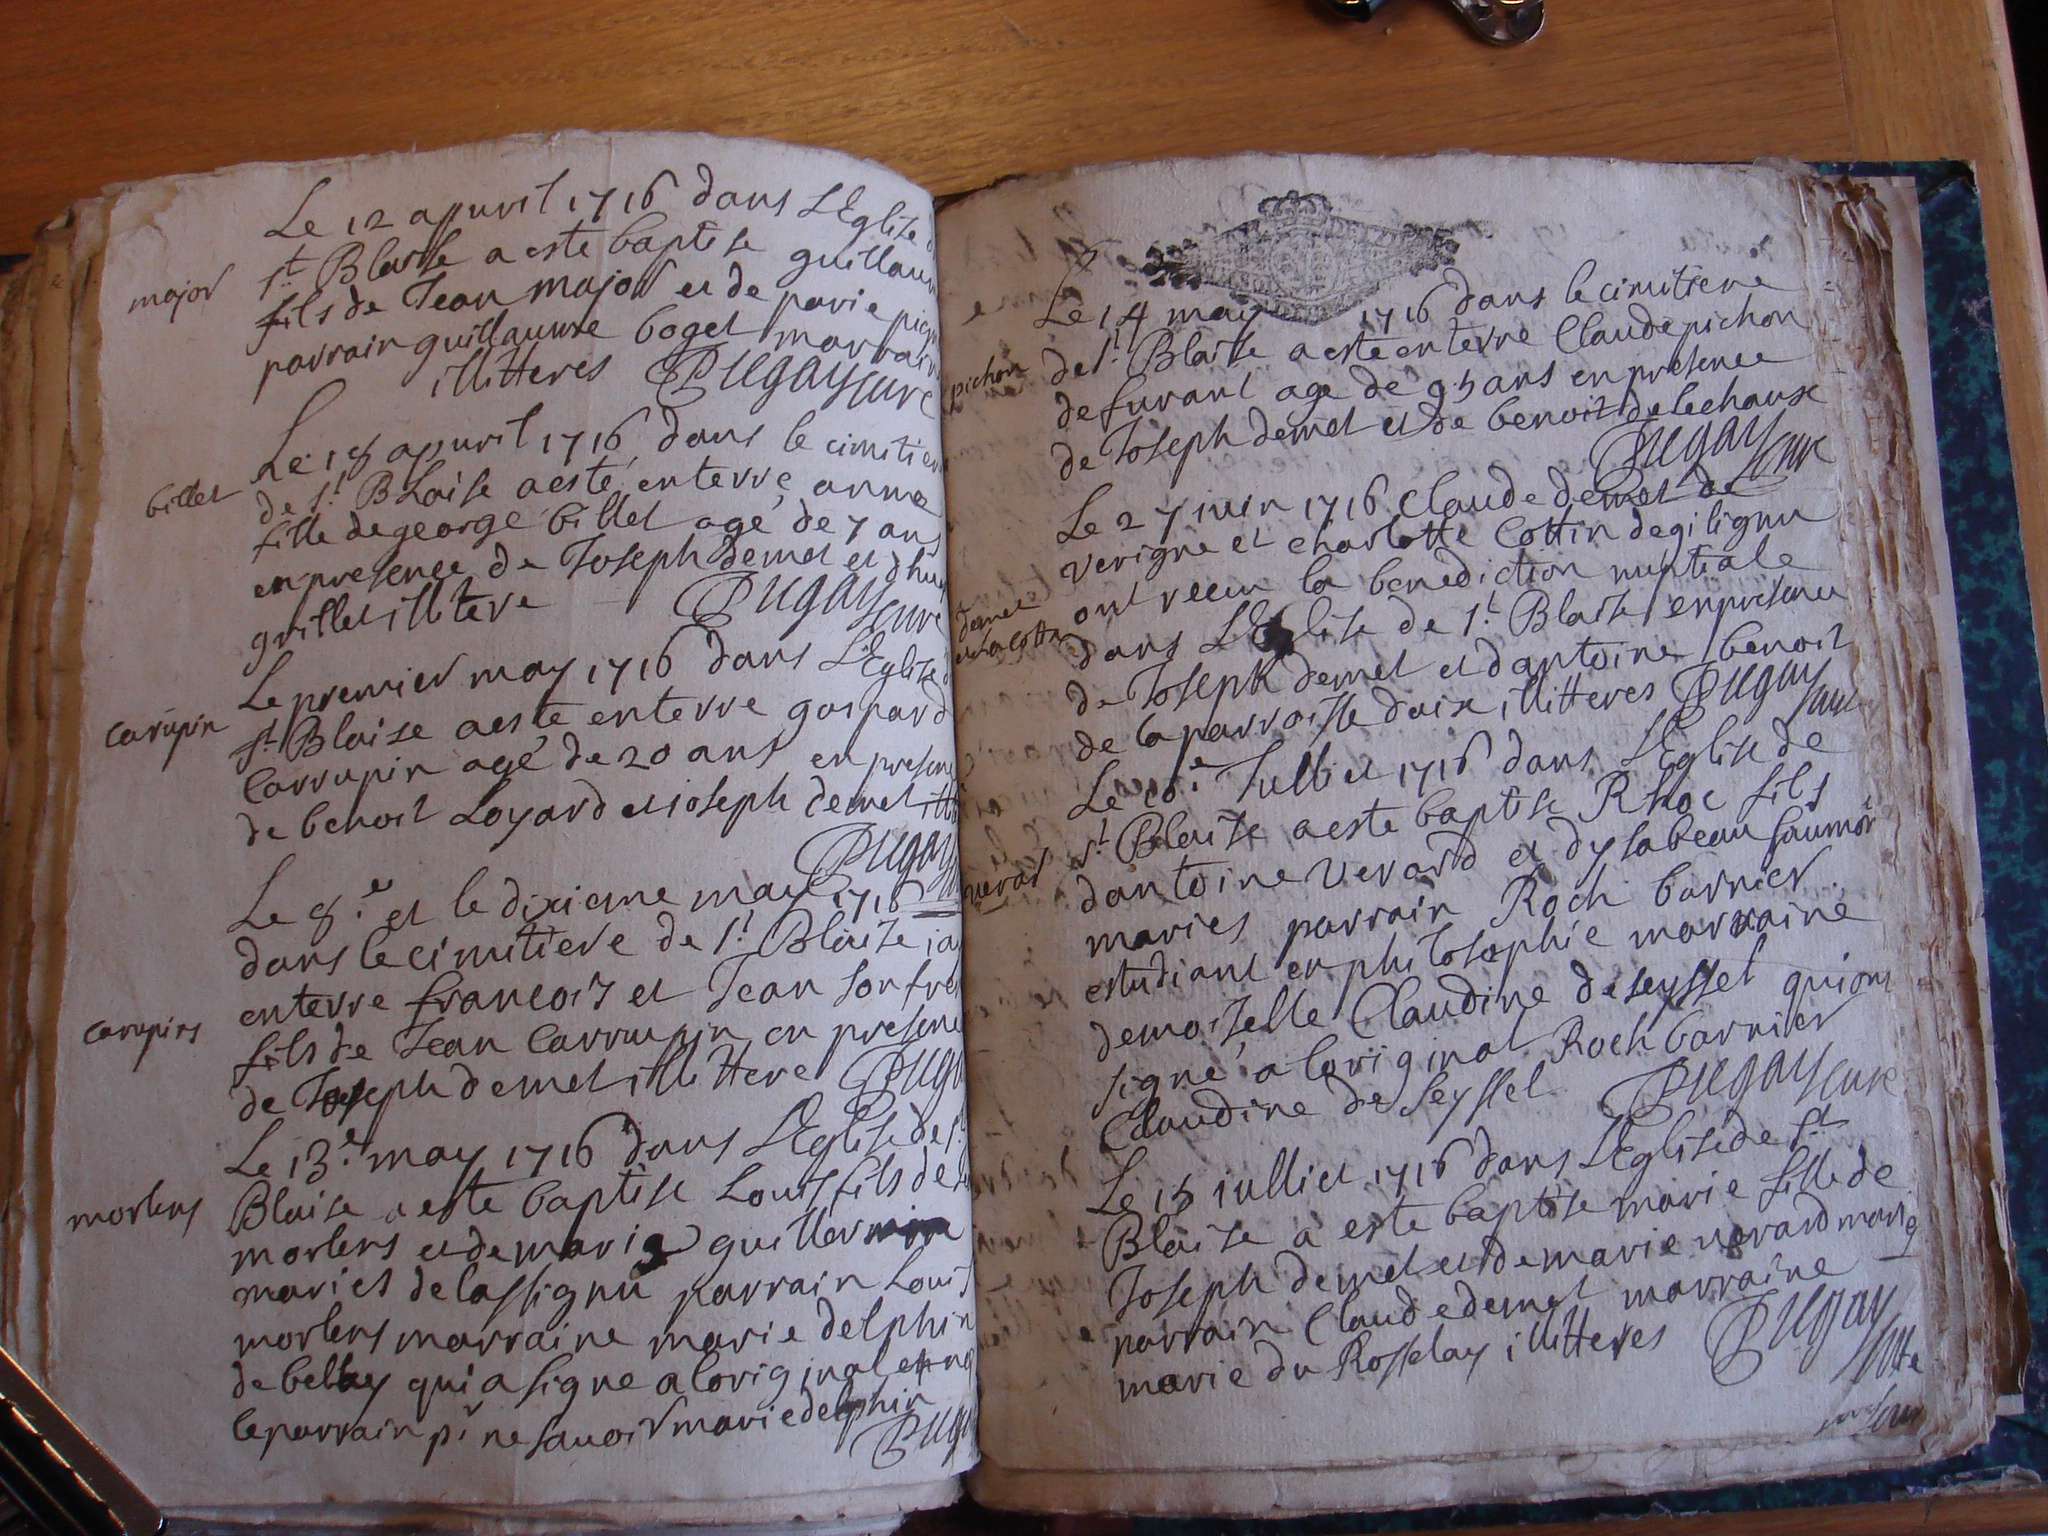 Le 12 apuril 1716 dans LEglise
major
st Blaise a este baptise guillaum
fils de Jean major et de
parrain guillaume boget marrain
illitteres Pugay cure
Le 18 apuril 1716 dans le cimitier
billet
de st Blaise a esté enterré anne
fille de george billet agé de 7 ans
en presence de Joseph demet et
guillet illitere Pugay cure
Le premier may 1716 dans LEglise
carupin
st Blaise a esté enterre gaspard
Carrupin agé de 20 ans en presen
de benoit Loyard et ioseph demet
Pugay
Le 8.e et le dixieme may 1716
dans le cimitiere de st Blaise
carupins
enterre francois et Jean son fre
fils de Jean Carrupin en presene
de Joseph demet illittere Puga
Le 13.e may 1716 dans LEglise de st
morlens
Blaise a este baptise Louis fils de
morlens et de marie
maries de lassignu parrain Louis
morlens marraine marie delphin
de belley qui a signe a loriginal et non
le parrain pr ne sauoir marie delphin
Puga
Le 14 may 1716 dans le cimitiere
pichon
de st Blaise a este enterre Claude pichon
de furant age de 95 ans en presence
de Joseph demet et de benoit
Pugay cure
Le 27 iuin 1716 Claude demet de
verigne et charlotte Cottin de gilignu
demet
et la Cottin
ont receu la benediction nuptiale
dans LEglise de st Blaise en presence
de Joseph demet et dantoine benoit
de la parroisse daix illitteres Pugay
cure
Le 10.e Julliet 1716 dans LEglise de
verard
st Blaise a este baptise Rhoc fils
dantoine verard et dysabeau
maries parrain Roch barnier
estudiant en philosophie marraine
demoiselle Claudine de seyssel qui ont
signé a loriginal Roch barnier
Claudine de Seyssel Pugay cure
Le 15 iulliet 1716 dans LEglise de st
Blaise a este baptise marie fille de
Joseph demet et de marie verard
parrain Claude demet marraine
marie du Rosselay illitteres Pugay